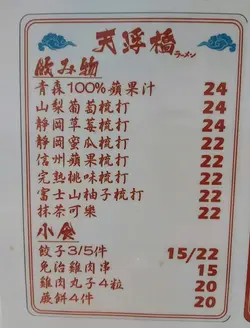 天浮橋
ラーメン
飲み物
青森100%蘋果汁 24
山梨葡萄梳打 24
靜岡草莓梳打 24
靜岡蜜瓜梳打 22
信州蘋果梳打 22
完熟桃味梳打 22
富士山柚子梳打 22
抹茶可樂 22
小食
餃子3/5件 15/22
免治雞肉串 15
雞肉丸子4粒 20
蕨餅4件 20